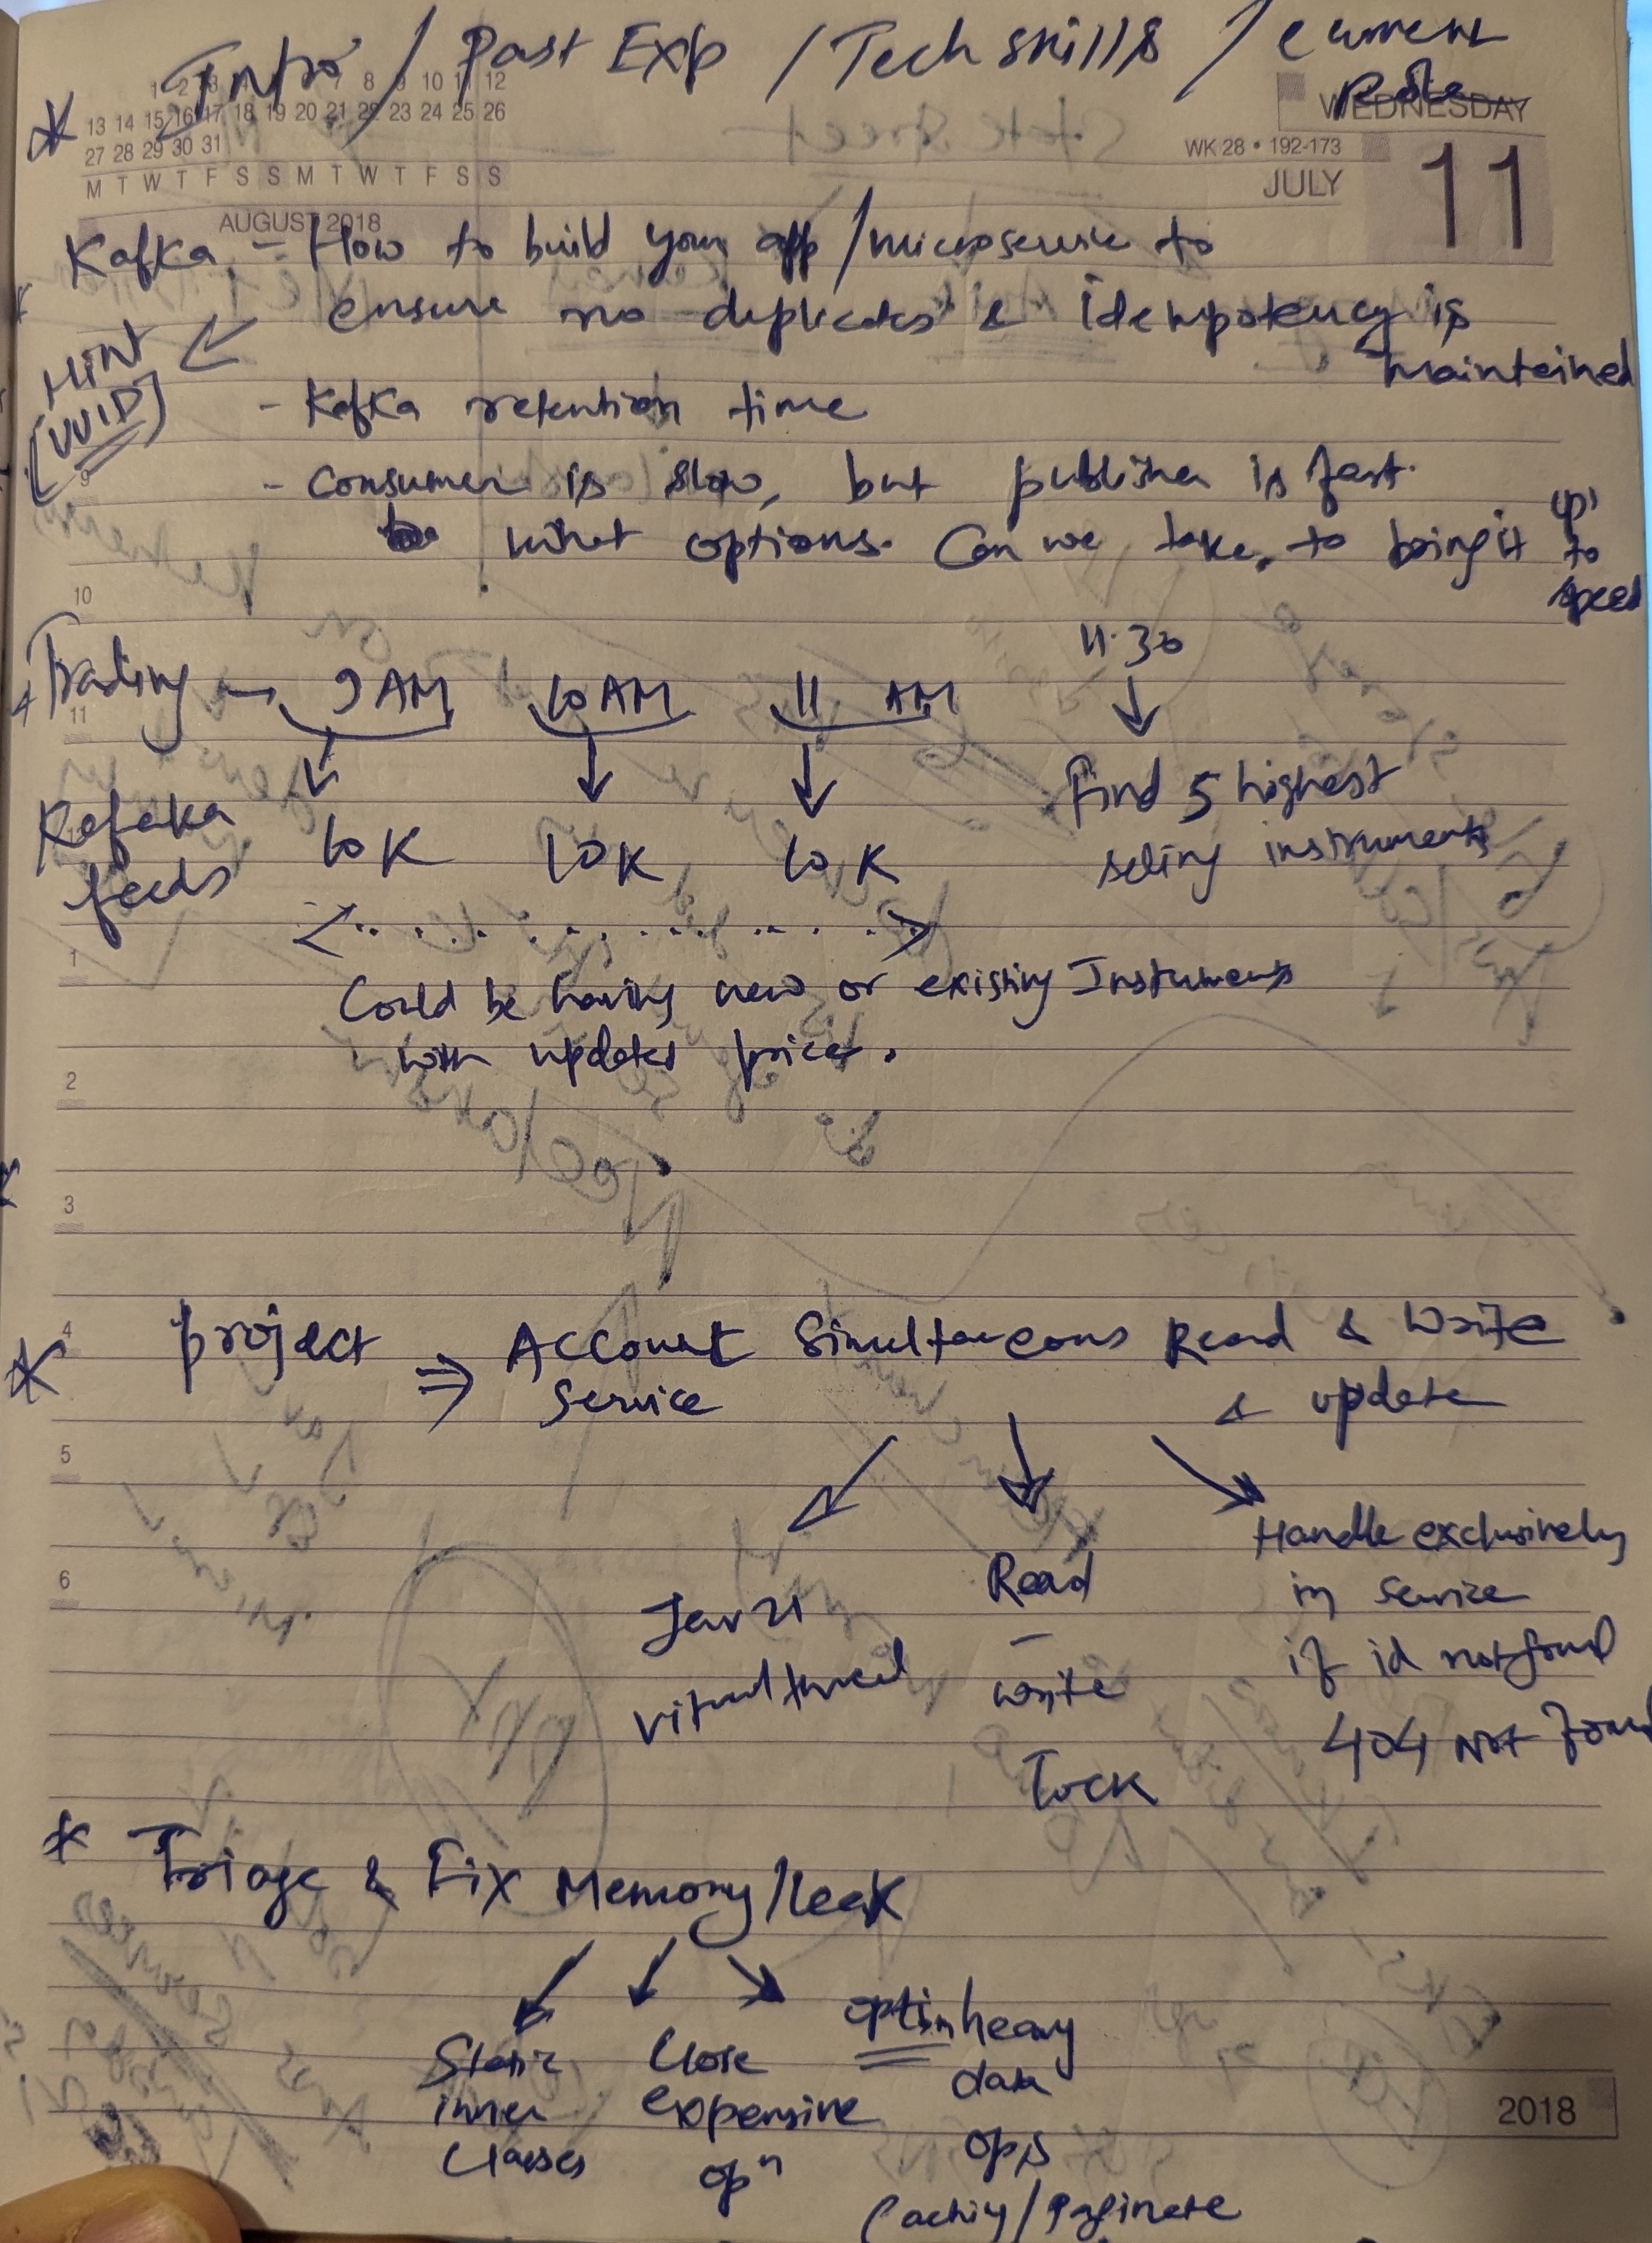 Intro / Past Exp / Tech skills / current Role
1 2 3 7 8 9 10 11 12
13 14 15 16 17 18 19 20 21 22 23 24 25 26
27 28 29 30 31
M T W T F S S M T W T F S S
AUGUST 2018
WEDNESDAY
WK 28 • 192-173
JULY
11
Kafka - How to build your app/microservice to
ensure no duplicates & idempotency is
maintained
HINT
[UUID]
- Kafka retention time
- Consumer is slow, but publisher is fast.
what options. Can we take, to bring it up to speed
9
10
Trading → 9 AM 10 AM 11 AM 11.30
11
Kafaka feeds
10K 10K 10K
Find 5 highest
seling instruments
1
Could be having new or existing Instuments
with updates prices.
2
3
4
* project ⇒ Account Service Simultaneous Read & Write
& update
5
6
Jav 21
virtual thread
Read
-
write
Lock
Handle exclusively
in service
if id not found
404 Not Found
* Triage & Fix Memory/leak
Static
inner
classes
Close
expensive
opⁿ
optim heavy
data
ops
Caching/Paginate
2018